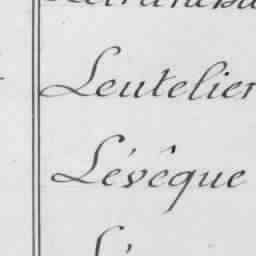 Leutelier
Lévêque